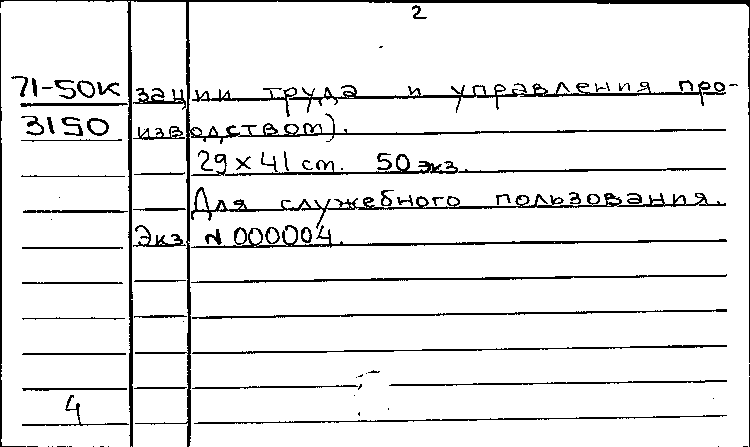 2
71-50к зации труда и управления про-
3150 изводством).
29 x 41 cm. 50 экз.
Для служебного пользования.
Экз N 000004.
4